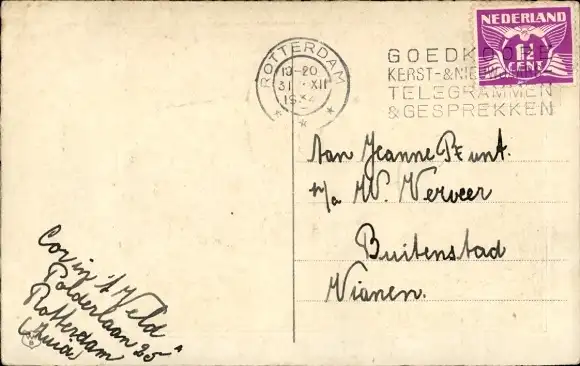 NEDERLAND
1½
CENT
ROTTERDAM
19-20
31 XII
GOEDKOOPE
KERST- & NIEUWJAARS
TELEGRAMMEN
& GESPREKKEN
Aan Jeanne Punt.
p/a W. Verveer
Buitenstad
Vianen.
Cor in 't Veld
Polderlaan 25 A
Rotterdam
(Zuid)